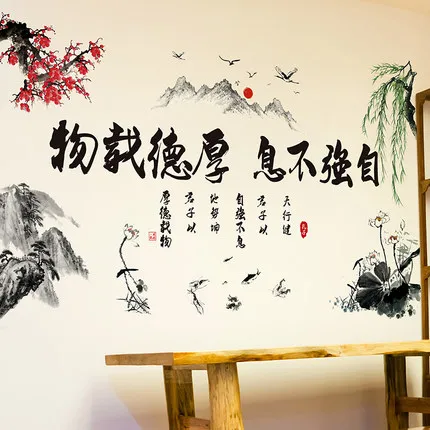 自強不息 厚德載物
天行健
君子以
自強不息
地勢坤
君子以
厚德載物